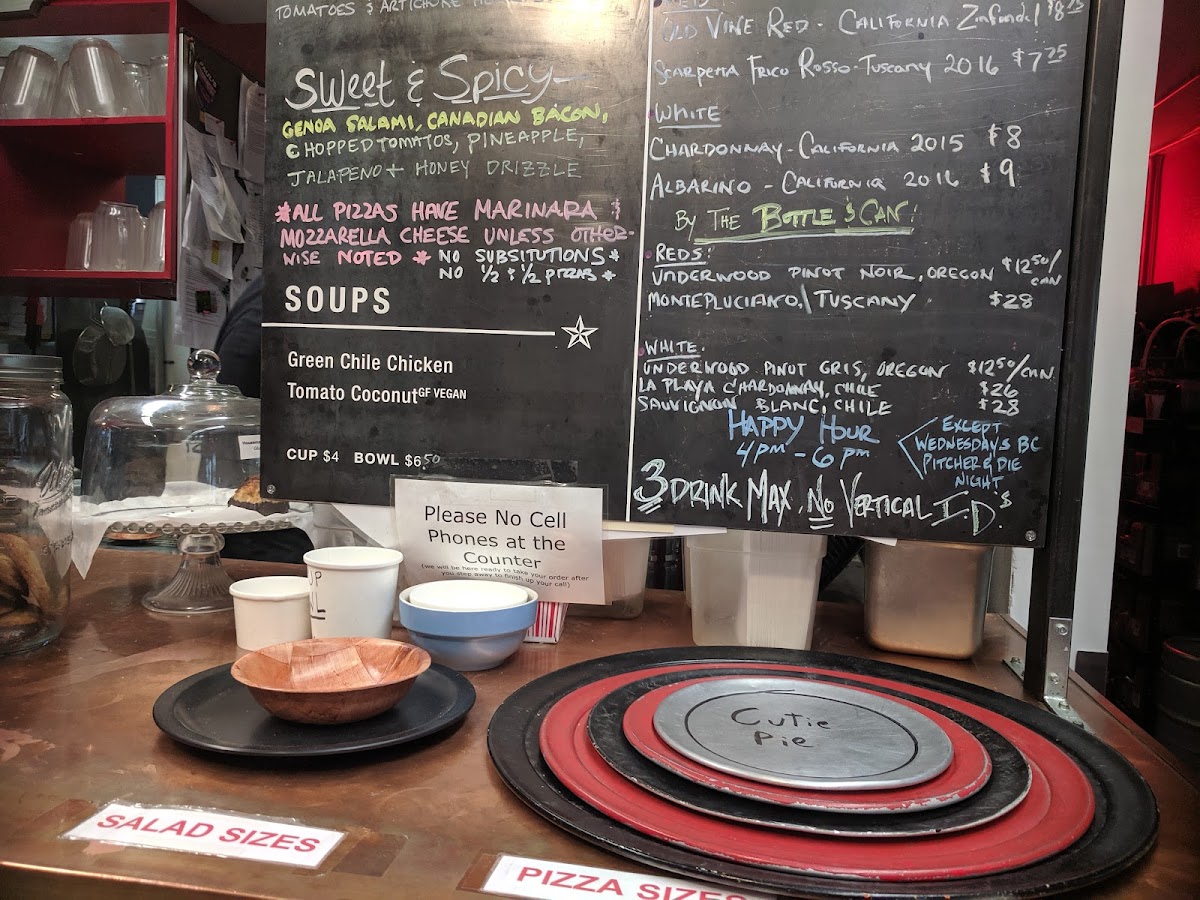 TOMATOES & ARTICHOKE
Sweet & Spicy
GENOA SALAMI, CANADIAN BACON,
CHOPPED TOMATOS, PINEAPPLE,
JALAPENO + HONEY DRIZZLE
*ALL PIZZAS HAVE MARINARA &
MOZZARELLA CHEESE UNLESS OTHER-
WISE NOTED * NO SUBSITUTIONS *
NO 1/2 & 1/2 PIZZAS *
SOUPS
Green Chile Chicken
Tomato Coconut GF VEGAN
CUP $4 BOWL $6.50
OLD VINE RED - CALIFORNIA Zinfandel $8.25
SCARPETTA FRICO ROSSO - TUSCANY 2016 $7.25
WHITE
CHARDONNAY - CALIFORNIA 2015 $8
ALBARINO - CALIFORNIA 2016 $9
BY THE BOTTLE & CAN!
REDS:
UNDERWOOD PINOT NOIR, OREGON $12.50/CAN
MONTEPLUCIANO, TUSCANY $28
WHITE.
UNDERWOOD PINOT GRIS, OREGON $12.50/CAN
LA PLAYA CHARDONNAY, CHILE $26
SAUVIGNON BLANC, CHILE $28
HAPPY HOUR
4PM - 6PM
EXCEPT
WEDNESDAYS BC
PITCHER & PIE
NIGHT
3 DRINK MAX, NO VERTICAL I.D.'s
Please No Cell
Phones at the
Counter
(we will be here ready to take your order after
you step away to finish up your call)
Cutie
Pie
SALAD SIZES
PIZZA SIZES